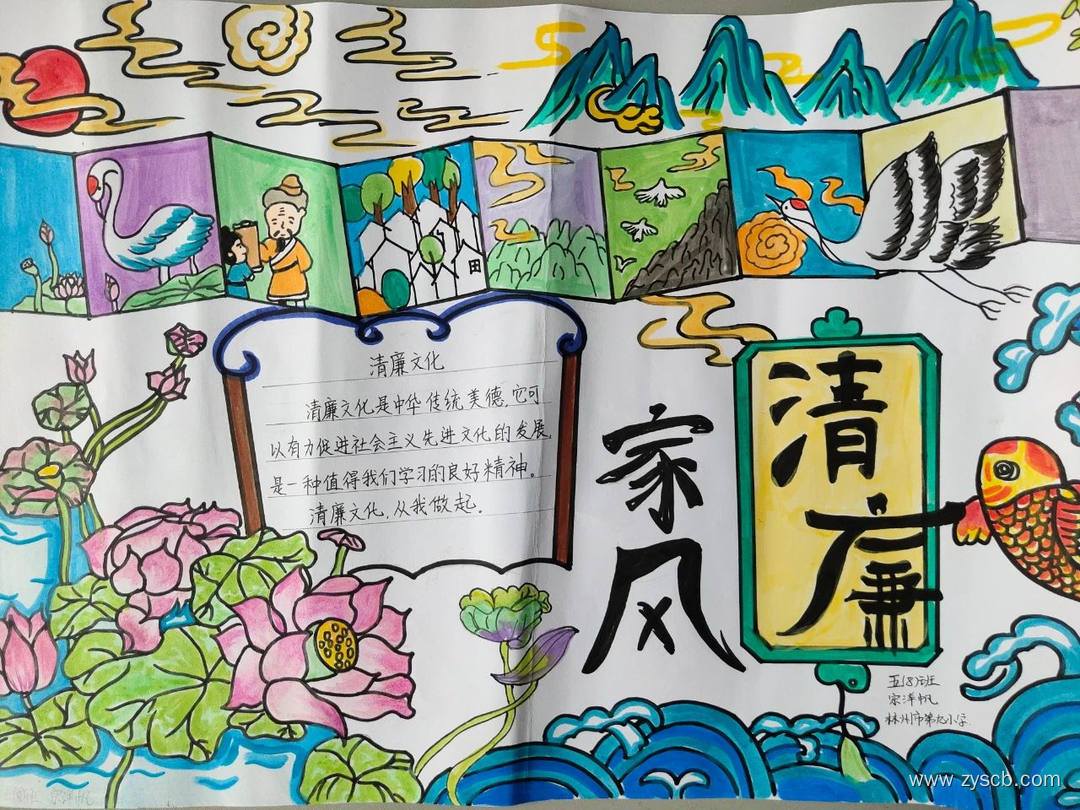 清廉文化
清廉文化是中华传统美德,它可
以有力促进社会主义先进文化的发展,
是一种值得我们学习的良好精神。
清廉文化,从我做起。
清廉
家风
五(8)班
宗洋帆
林州市第九小学
www.zyscb.com